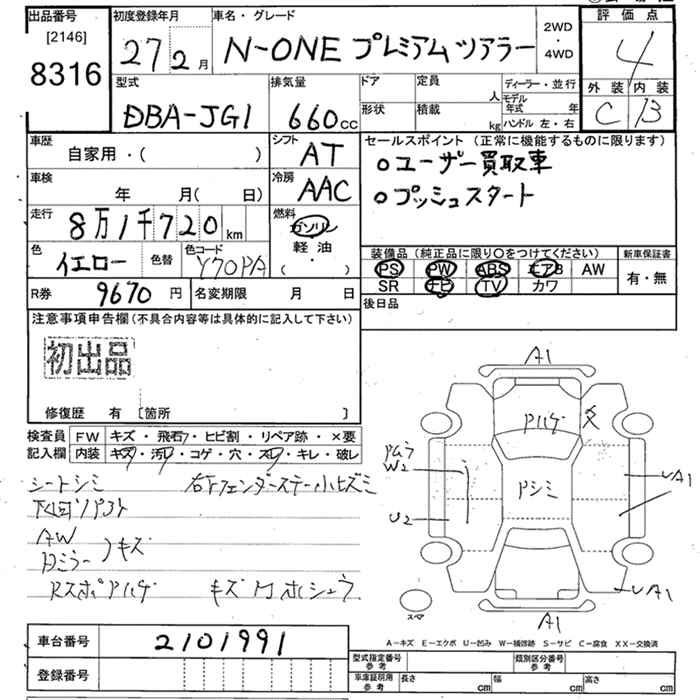 出品番号
[2146]
8316
初度登録年月
27年2月
車名・グレード
N-ONE プレミアム ツアラー
2WD
・
4WD
評価点
4
外装 内装
C B
型式
DBA-JG1
排気量
660cc
ドア
形状
定員
人
積載
kg
ディーラー・並行
モデル年式 年
ハンドル 左・右
車歴
自家用・( )
シフト
AT
セールスポイント (正常に機能するものに限ります)
○ユーザー買取車
○プッシュスタート
車検
年 月( 日)
冷房
AAC
走行
8万1千720km
燃料
ガソリン
軽油
( ・ )
色
イエロー
色替
色コード
Y70PA
装備品 (純正品に限り○をつけてください)
PS PW ABS エアB AW
SR ナビ TV カワ
新車保証書
有・無
R券
9670円
名変期限 月 日
後日品
注意事項申告欄 (不具合内容等は具体的に記入して下さい)
初出品
修復歴 有 [箇所 ]
検査員記入欄
FW キズ・飛石・ヒビ割・リペア跡・×要
内装 キズ・汚レ・コゲ・穴・スレ・キレ・破レ
シートシミ
右Fフェンダーステー小ヒズミ
AW
ドミラー キズ
Rスポ Pハゲ
キズ
A1
Pハゲ
Pムラ
W2
Pシミ
UA1
U2
UA1
A1
スペア
A-キズ E-エクボ U-凹み W-補修跡 S-サビ C-腐食 XX-交換済
車台番号
2101991
登録番号
型式指定番号
参考
類別区分番号
参考
車庫証明用
参考
長さ cm 幅 cm 高さ cm